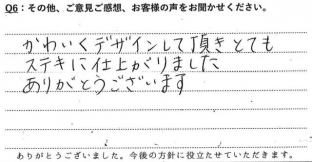 Q6：その他、ご意見ご感想、お客様の声をお聞かせください。
かわいくデザインして頂きとても
ステキに仕上がりました
ありがとうございます
ありがとうございました。今後の方針に役立たせていただきます。